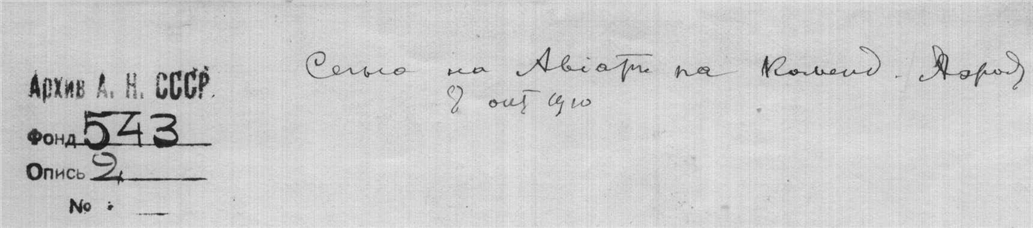 на на Коменд. Аэрод
8 окт 1910
Архив А. Н. СССР.
Фонд 543
Опись 2
№